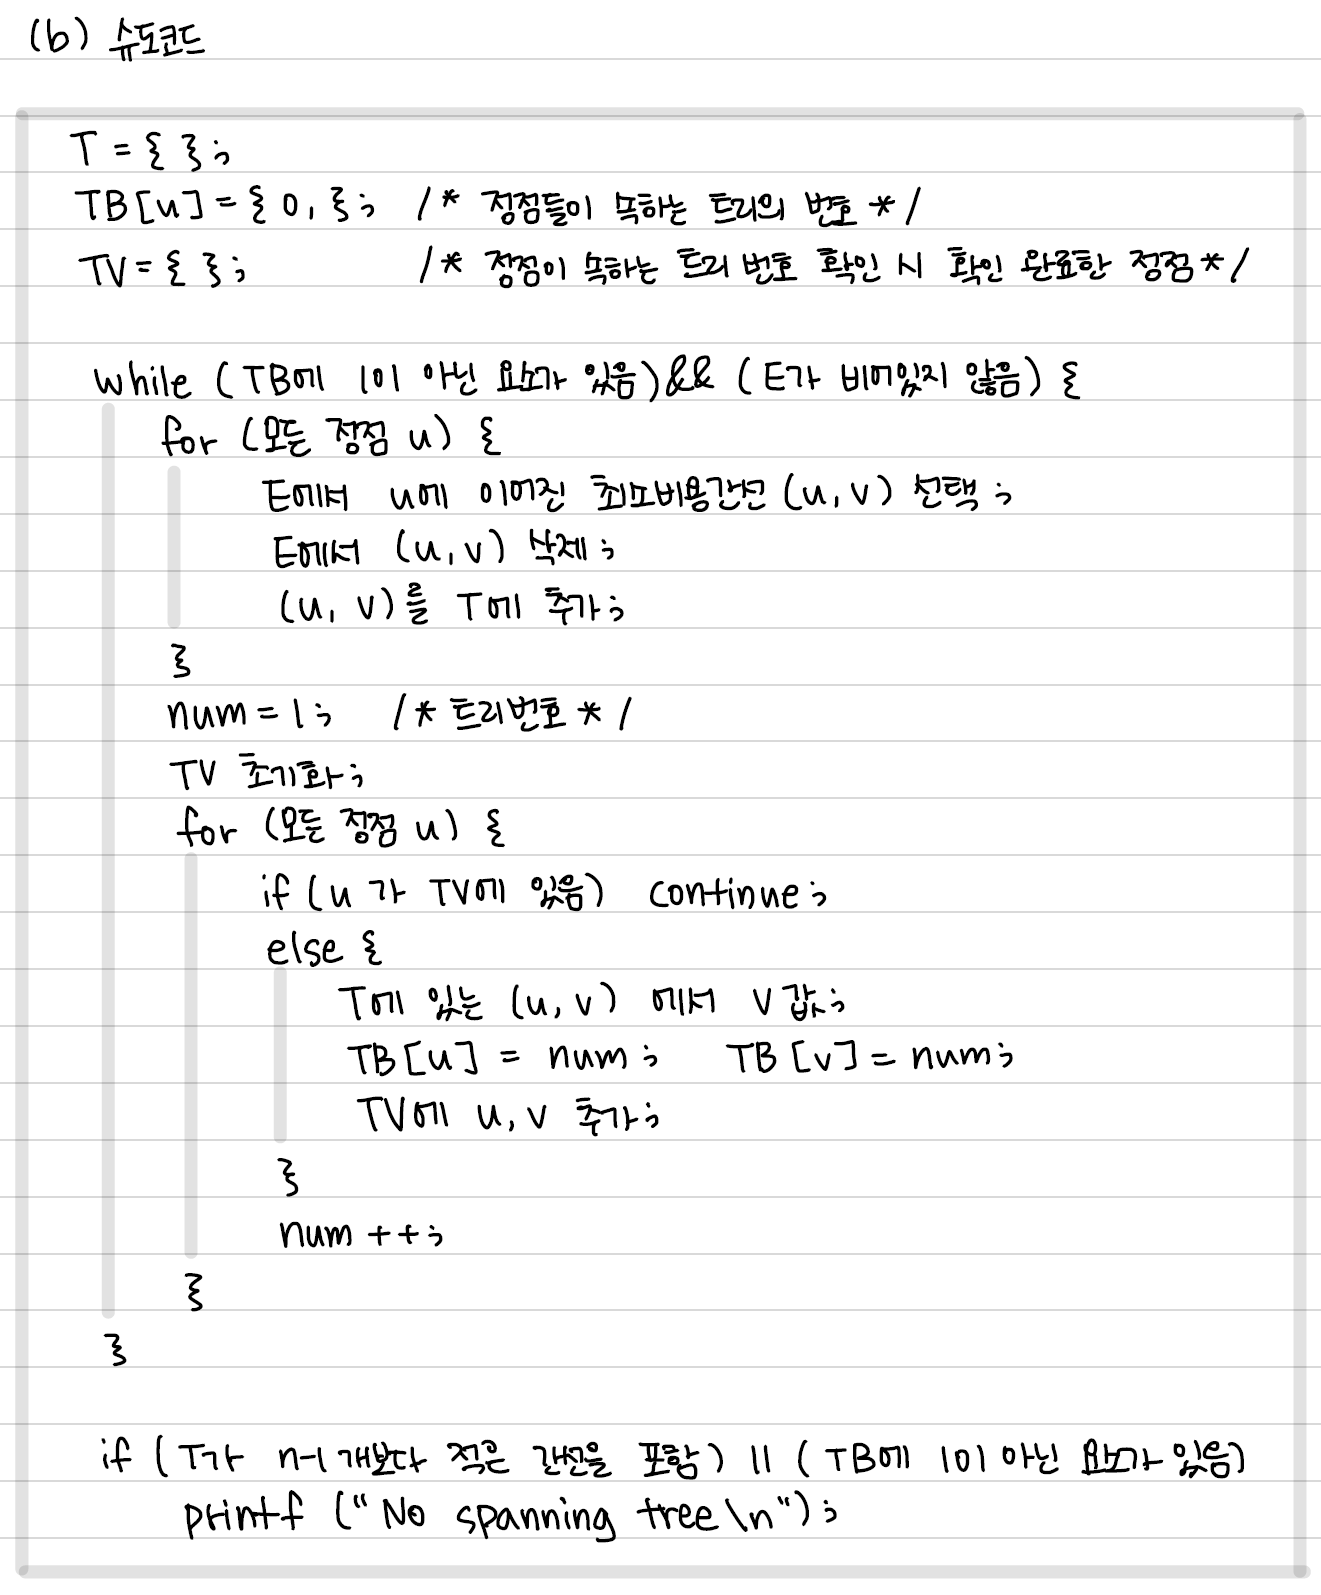 (b) 슈도코드
T = { };
TB[u] = { 0, }; /* 정점들이 속하는 트리의 번호 */
TV = { }; /* 정점이 속하는 트리 번호 확인 시 확인 완료한 정점 */
while (TB에 1이 아닌 요소가 있음) && (E가 비어있지 않음) {
for (모든 정점 u) {
E에서 u에 이어진 최소비용간선 (u, v) 선택;
E에서 (u, v) 삭제;
(u, v)를 T에 추가;
}
num = 1; /* 트리번호 */
TV 초기화;
for (모든 정점 u) {
if (u가 TV에 있음) continue;
else {
T에 있는 (u, v) 에서 v값;
TB[u] = num; TB[v] = num;
TV에 u, v 추가;
}
num ++;
}
}
if (T가 n-1개보다 적은 간선을 포함) || (TB에 1이 아닌 요소가 있음)
printf ("No spanning tree\n");